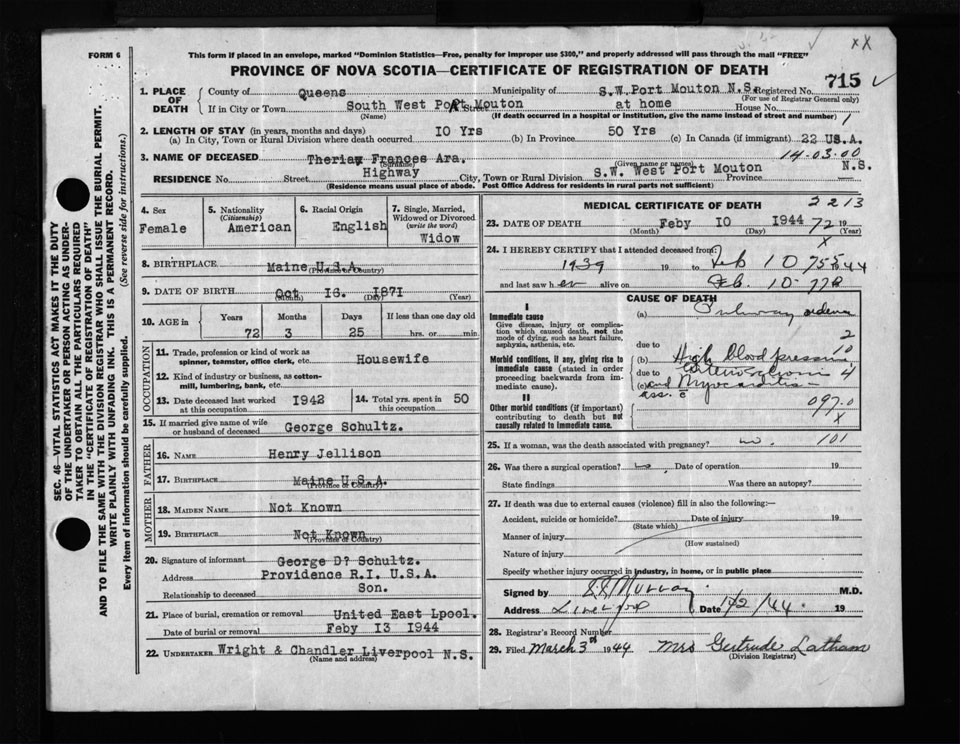 FORM 6
This form if placed in an envelope, marked "Dominion Statistics—Free, penalty for improper use $300," and properly addressed will pass through the mail "FREE"
xX
PROVINCE OF NOVA SCOTIA—CERTIFICATE OF REGISTRATION OF DEATH
715
1. PLACE OF DEATH
County of Queens Municipality of S.W. Port Mouton N.S. Registered No.
(For use of Registrar General only)
If in City or Town South West Port Mouton Street at home House No.
(Name) (If death occurred in a hospital or institution, give the name instead of street and number)
2. LENGTH OF STAY (in years, months and days)
(a) In City, Town or Rural Division where death occurred 10 Yrs (b) In Province 50 Yrs (c) In Canada (if immigrant) 22 U.S.A.
14-03-00
3. NAME OF DECEASED Theriau Frances Ara.
(Surname) (Given name or names)
RESIDENCE No. Street Highway City, Town or Rural Division S.W. West Port Mouton Province N.S.
(Residence means usual place of abode. Post Office Address for residents in rural parts not sufficient)
4. Sex
Female
5. Nationality
(Citizenship)
American
6. Racial Origin
English
7. Single, Married, Widowed or Divorced
(write the word)
Widow
8. BIRTHPLACE Maine U.S.A.
(Province or Country)
9. DATE OF BIRTH Oct 16. 1871
(Month) (Day) (Year)
10. AGE in Years Months Days If less than one day old
72 3 25 hrs. or min.
OCCUPATION
11. Trade, profession or kind of work as spinner, teamster, office clerk, etc. Housewife
12. Kind of industry or business, as cotton-mill, lumbering, bank, etc.
13. Date deceased last worked at this occupation 1942
14. Total yrs. spent in this occupation 50
15. If married give name of wife or husband of deceased George Schultz.
FATHER
16. NAME Henry Jellison
17. BIRTHPLACE Maine U.S.A.
(Province or Country)
MOTHER
18. MAIDEN NAME Not Known
19. BIRTHPLACE Not Known
(Province or Country)
20. Signature of informant George D? Schultz.
Address Providence R.I. U.S.A.
Relationship to deceased Son.
21. Place of burial, cremation or removal United East Lpool.
Date of burial or removal Feby 13 1944
22. UNDERTAKER Wright & Chandler Liverpool N.S.
(Name and address)
MEDICAL CERTIFICATE OF DEATH
2213
23. DATE OF DEATH Feby 10 1944 72 19
(Month) (Day) (Year)
X
24. I HEREBY CERTIFY that I attended deceased from:
1939 19 to Feb 10 44
and last saw her alive on Feb. 10
CAUSE OF DEATH
I
Immediate cause
Give disease, injury or complication which caused death, not the mode of dying, such as heart failure, asphyxia, asthenia, etc.
Morbid conditions, if any, giving rise to immediate cause (stated in order proceeding backwards from immediate cause).
II
Other morbid conditions (if important) contributing to death but not causally related to immediate cause.
(a) Pulmonary oedema
due to
(b) High blood pressure
due to
(c) and Myocarditis
097.0
X
25. If a woman, was the death associated with pregnancy? no. 101
26. Was there a surgical operation? no. Date of operation 19
State findings Was there an autopsy?
27. If death was due to external causes (violence) fill in also the following:—
Accident, suicide or homicide? Date of injury 19
(State which)
Manner of injury
(How sustained)
Nature of injury
Specify whether injury occurred in industry, in home, or in public place
Signed by Murray M.D.
Address Liverpool Date 19
28. Registrar's Record Number
29. Filed March 3rd 1944 Mrs Gertrude Latham
(Division Registrar)
SEC. 46—VITAL STATISTICS ACT MAKES IT THE DUTY
OF THE UNDERTAKER OR PERSON ACTING AS UNDER-
TAKER TO OBTAIN ALL THE PARTICULARS REQUIRED
IN THE "CERTIFICATE OF REGISTRATION OF DEATH"
AND TO FILE THE SAME WITH THE DIVISION REGISTRAR WHO SHALL ISSUE THE BURIAL PERMIT.
WRITE PLAINLY WITH UNFADING INK. THIS IS A PERMANENT RECORD.
Every item of information should be carefully supplied. (See reverse side for instructions.)